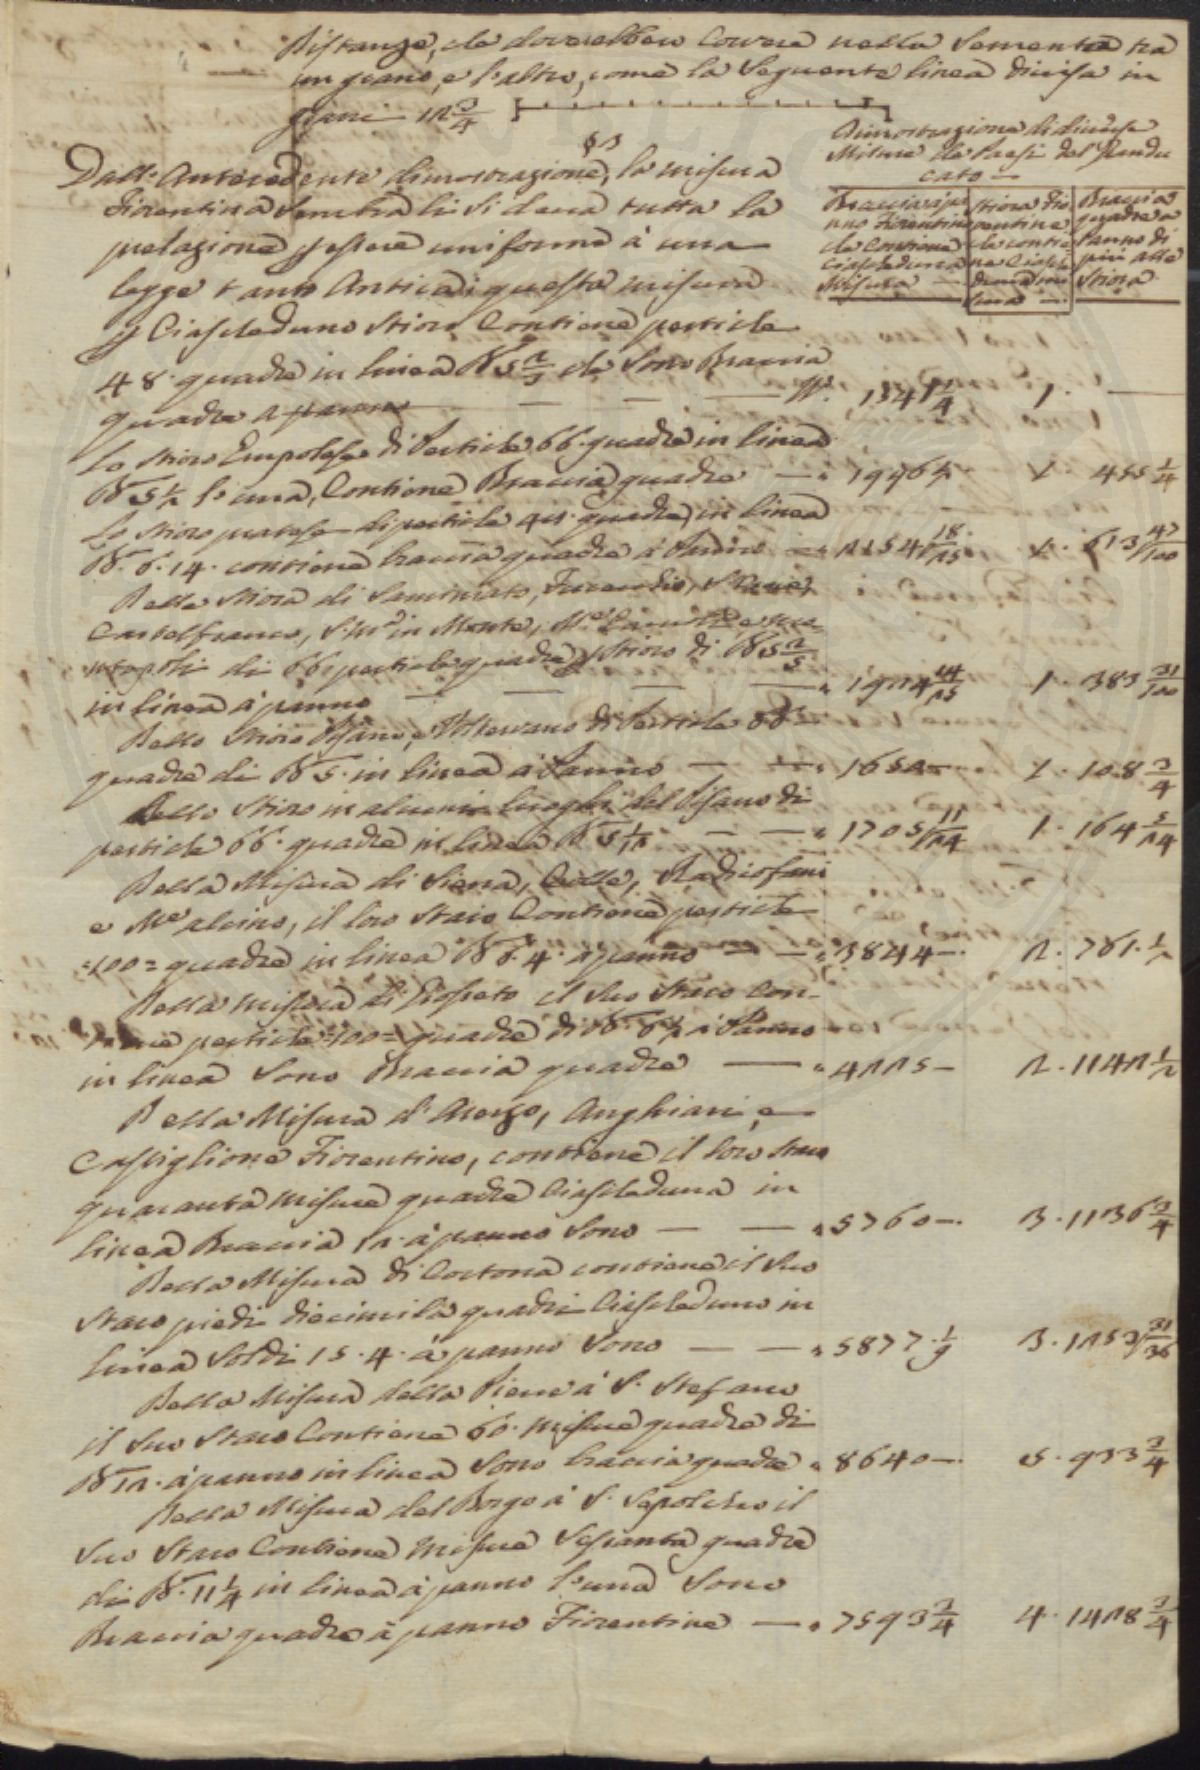 Distanze, che dovrebbero Correre nella Sementa tra
un grano, e l'altro, come la Seguente linea divisa in
grani 12 3/4
Dimostrazione di diverse
Misure de Paesi del Gran du
cato
Braccia à pan
no Fiorentino
che Contiene
Ciascheduna
Misura
Stiora Fio
rentine
che contie
ne Ciasche
duna mi
sura
Braccia
quadre a
Panno di
più alle
Stiora
Dall'Antecedente dimostrazione, la misura
Fiorentina Sembra li si deva tutta la
prelazione p essere uniforme à una
legge tanto Antica; questa misura
p Ciascheduno Stioro Contiene pertiche
48 quadre in linea B 5 2/3 che Sono Braccia
quadre a panno — — — N. 1341 1/4 1. —
Lo Stioro Empolese di Pertiche 66 quadre in linea
B 5 1/2 l'una, Contiene Braccia quadre — 1996 1/2 1. 455 1/4
Lo Stioro pratese di pertiche 44 quadre in linea
B. 6. 14. contiene braccia quadre à Panno — 2154 18/25 1. 613 47/100
Dello Stioro di Saminiato, Fucecchio, S. Croce,
Castelfranco, S. M.a in Monte, M.e
di 66 pertiche quadre p Stioro di B 5 2/5
in linea à panno — — — 1924 14/25 1. 383 31/100
Dello Stioro Pisano, e Volterrano di Pertiche 66
quadre di B 5. in linea à Panno — — 1650 — 1. 108 3/4
Dello Stioro in alcuni luoghi del Pisano di
pertiche 66. quadre in linea B 5 1/12 — — 1705 11/24 1. 164 5/24
Della Misura di Siena, Colle, Radicofani
e M.e alcino, il loro Staio Contiene pertiche
100 = quadre in linea B 6. 4. à panno — — 3844 — 2. 761. 1/2
Della misura di Grosseto il Suo Staio Con-
tiene pertiche 100 = quadre di B. 6 1/2 à Panno
in linea Sono Braccia quadre — 4225 — 2. 1142 1/2
Della Misura d'Arezzo, Anghiari, e
Castiglione Fiorentino, contiene il loro Staio
quaranta misure quadre Ciascheduna in
linea Braccia 12. à panno Sono — — 5760 — 3. 1136 3/4
Della Misura di Cortona contiene il Suo
Staio piedi diecimila quadri Ciascheduno in
linea Soldi 15. 4. à panno Sono — — 5877. 1/9 3. 1253 31/36
Della Misura della Pieve à S. Stefano
il Suo Staio Contiene 60. misure quadre di
B 12. à panno in linea Sono braccia quadre 8640 — 5. 933 3/4
Della Misura del Borgo à S. Sepolcro il
Suo Staio Contiene misure Sessanta quadre
di B. 11 1/4 in linea à panno l'una Sono
Braccia quadre à panno Fiorentine — 7593 3/4 4. 1428 3/4